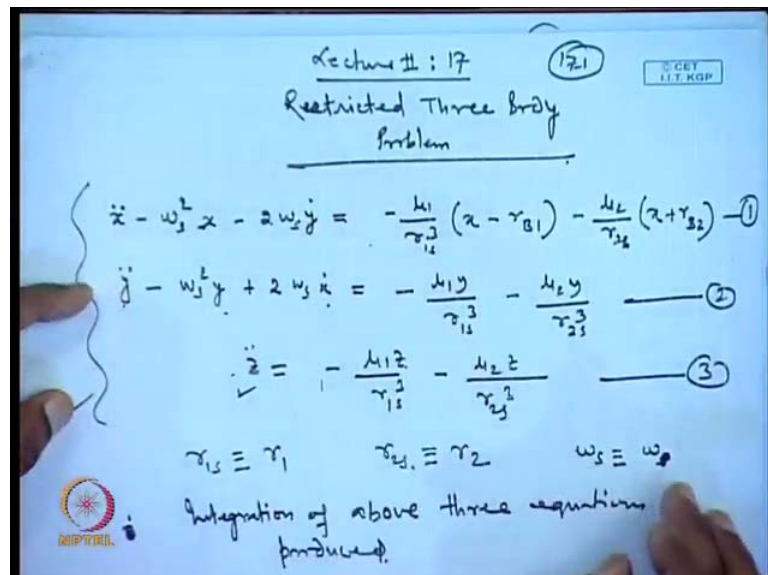 Lecture # : 17 17-1
© CET
I.I.T. KGP
Restricted Three Body
Problem
ẍ - ω_s² x - 2 ω_s ẏ = - μ₁/r₁ₛ³ (x - r_B1) - μ₂/r₂ₛ³ (x + r_B2) — ①
ÿ - ω_s² y + 2 ω_s ẋ = - μ₁y/r₁ₛ³ - μ₂y/r₂ₛ³ — ②
z̈ = - μ₁z/r₁ₛ³ - μ₂z/r₂ₛ³ — ③
r₁ₛ ≡ r₁ r₂ₛ ≡ r₂ ω_s ≡ ω
Integration of above three equations
produced
NPTEL